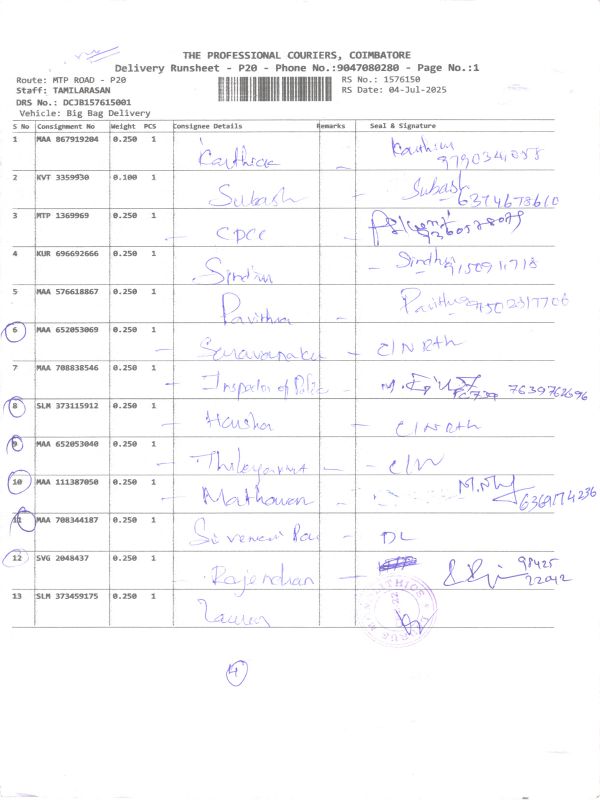 THE PROFESSIONAL COURIERS, COIMBATORE
Delivery Runsheet - P20 - Phone No.:9047080280 - Page No.:1
Route: MTP ROAD - P20
Staff: TAMILARASAN
DRS No.: DCJB157615001
Vehicle: Big Bag Delivery
RS No.: 1576150
RS Date: 04-Jul-2025
S No Consignment No Weight PCS Consignee Details Remarks Seal & Signature
1 MAA 867919204 0.250 1 Karthick - Karthick
2 KVT 3359930 0.100 1 Subash - Subash
6374673610
3 MTP 1369969 0.250 1 - CPCC -
4 KUR 696692666 0.250 1 - Sindhu - Sindhu
5 MAA 576618867 0.250 1 Pavithra - Pavithra
6 MAA 652053069 0.250 1 - - C/N Rth
7 MAA 708838546 0.250 1 - Inspector of Police - 7639762696
8 SLM 373115912 0.250 1 - Harsha - C/N Rth
9 MAA 652053040 0.250 1 - - C/N
10 MAA 111387050 0.250 1 - -
6369174236
11 MAA 708344187 0.250 1 - DL
12 SVG 2048437 0.250 1 - Rajendran - 98425
22042
13 SLM 373459175 0.250 1
4